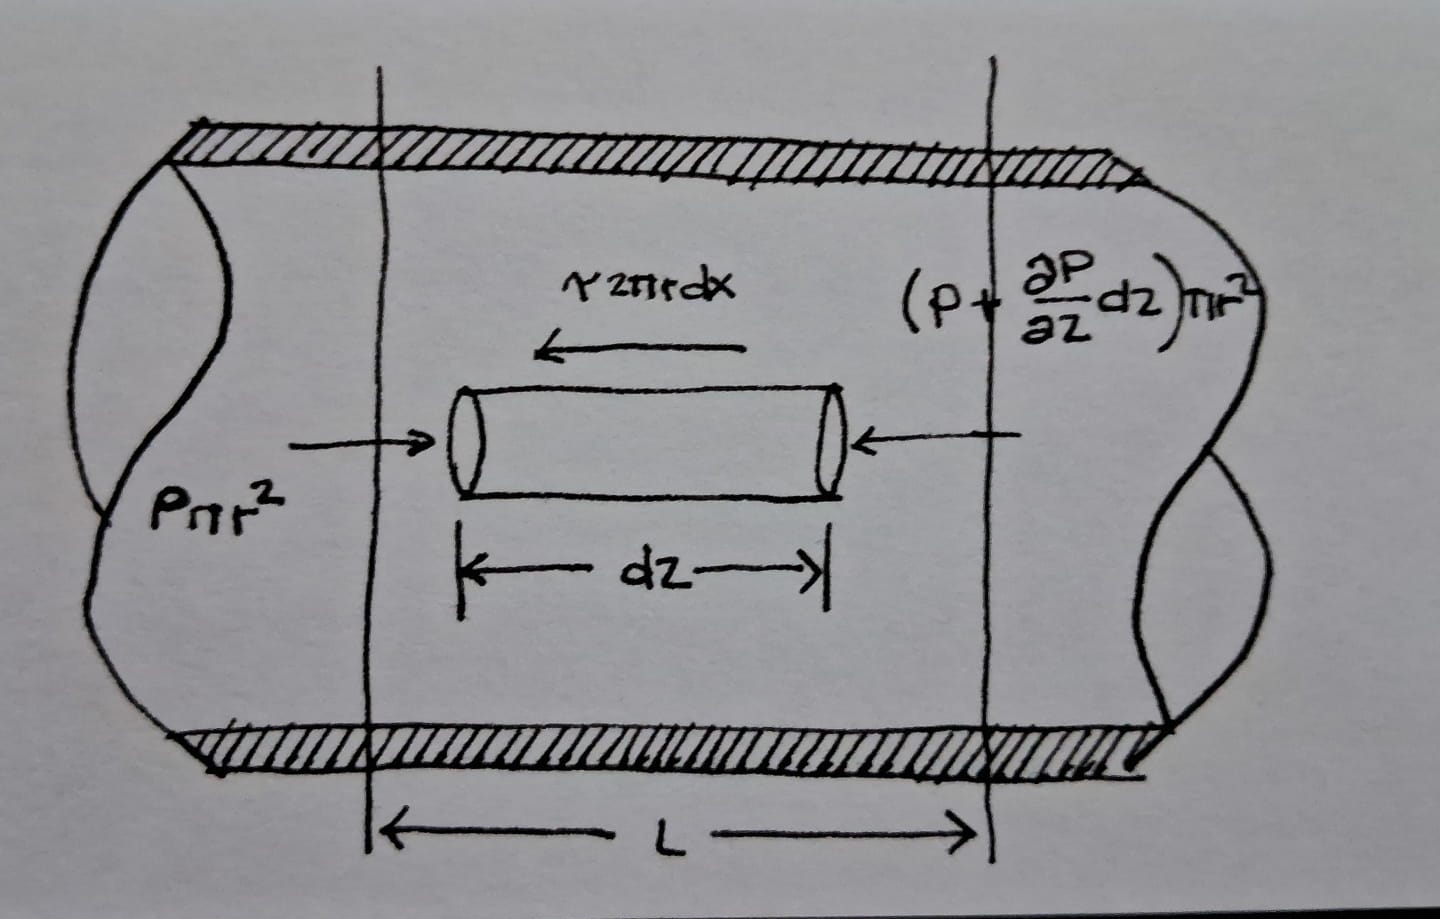 τ2πrdx
(P + ∂P/∂z dz)πr²
Pπr²
dz
L